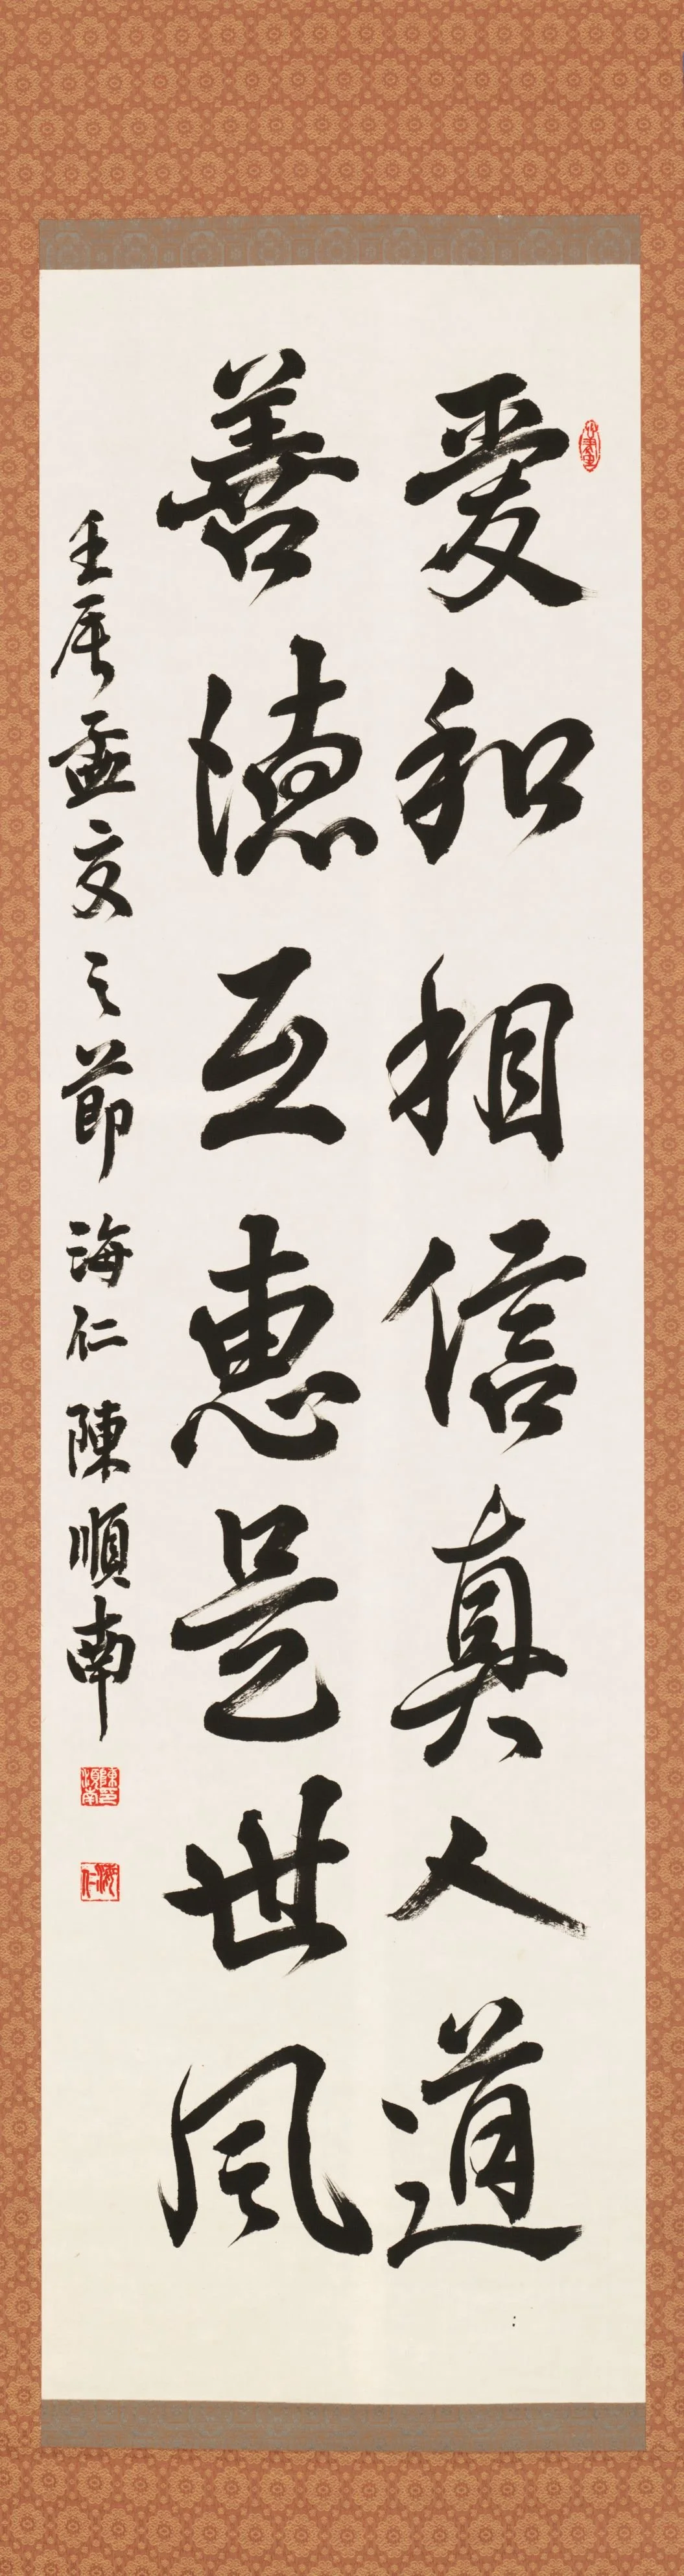 愛和相信真人道
善德互惠是世風
壬辰孟夏之節 海仁 陳順南
陳順南印
海仁